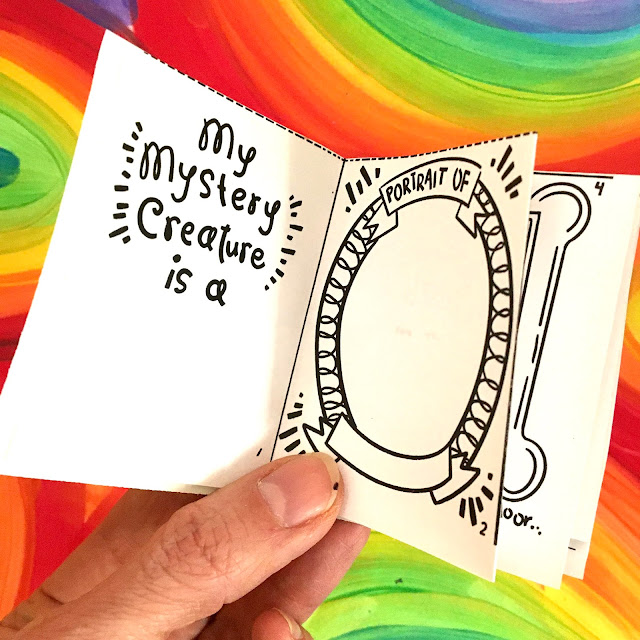 My
Mystery
Creature
is a
1
PORTRAIT OF
2
4
oor...